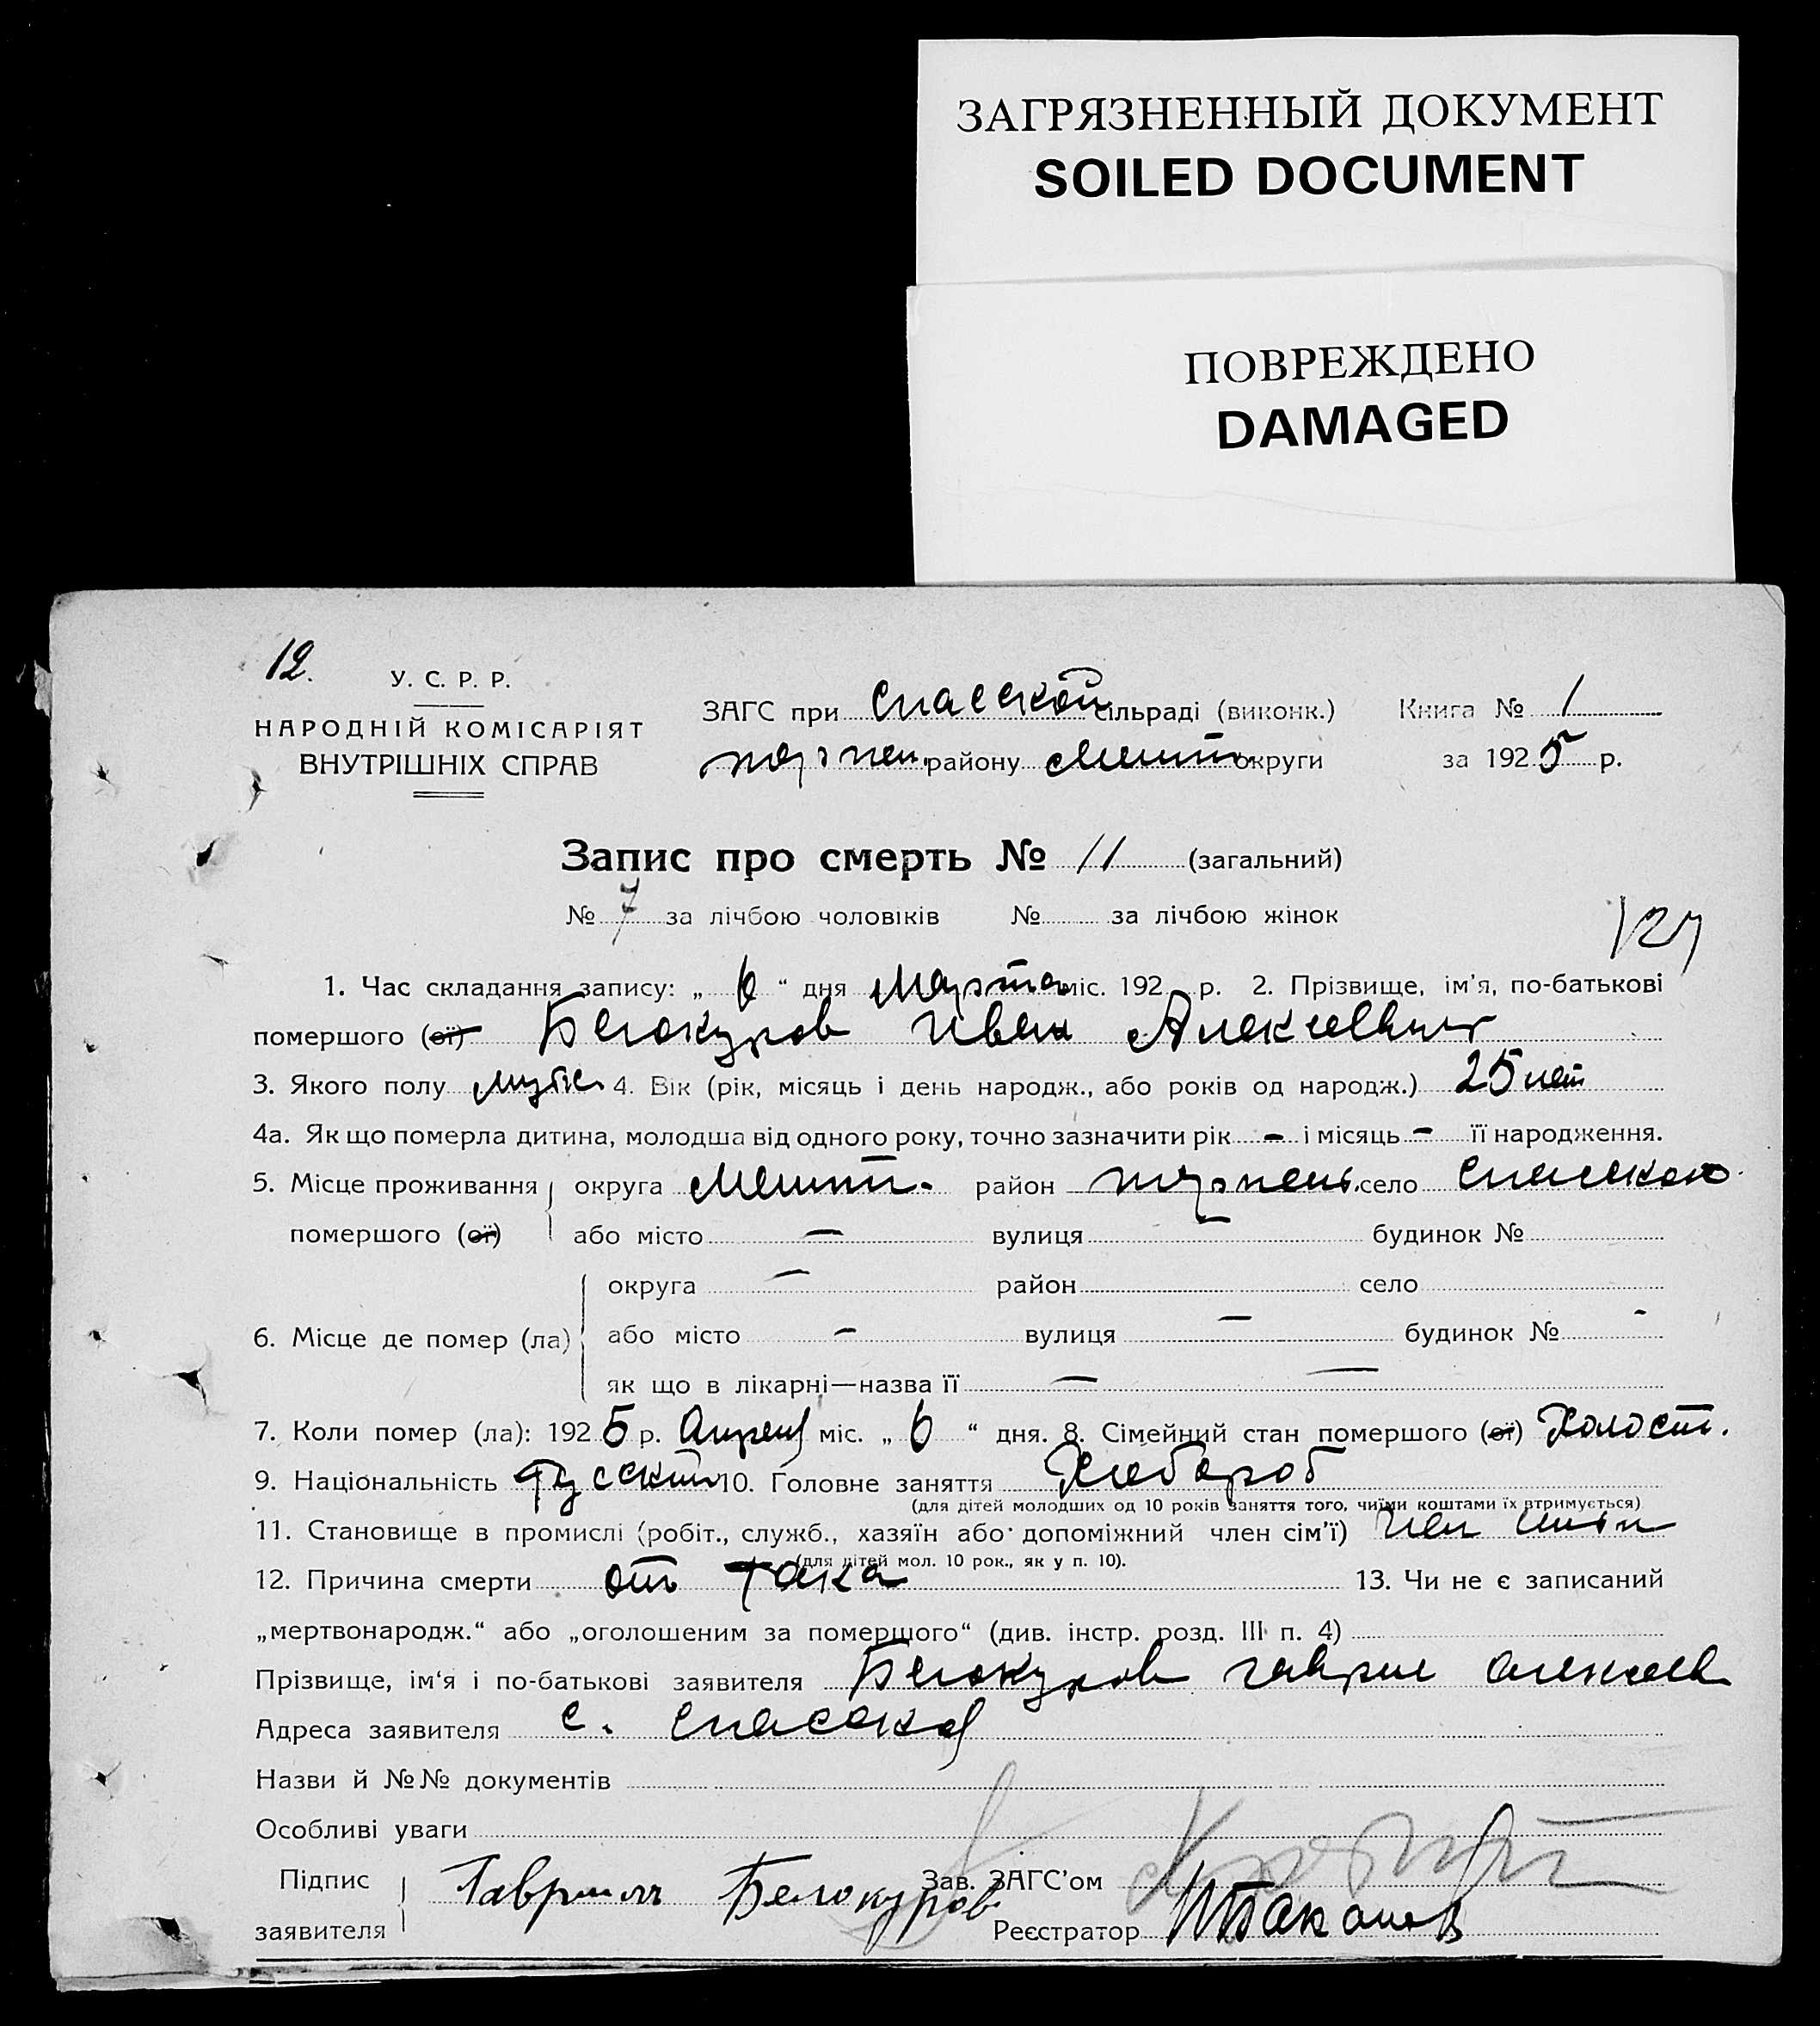 ЗАГРЯЗНЕННЫЙ ДОКУМЕНТ
SOILED DOCUMENT
ПОВРЕЖДЕНО
DAMAGED
12.
У. С. Р. Р.
НАРОДНІЙ КОМІСАРІЯТ
ВНУТРІШНІХ СПРАВ
ЗАГС при Спасской сільраді (виконк.) Книга № 1
району округи за 1925 р.
Запис про смерть № 11 (загальний)
№ 7 за лічбою чоловіків № за лічбою жінок
127
1. Час складання запису: „ 6 “ дня Марта міс. 192 р. 2. Прізвище, ім’я, по-батькові
помершого (ої) Белокуров Иван Алексеевич
3. Якого полу мужс 4. Вік (рік, місяць і день народж., або років од народж.) 25 лет
4а. Як що померла дитина, молодша від одного року, точно зазначити рік - і місяць - її народження.
5. Місце проживання округа район село
помершого (ої) або місто — вулиця — будинок №
округа — район село
6. Місце де помер (ла) або місто — вулиця — будинок № -
як що в лікарні—назва її — —
7. Коли помер (ла): 1925 р. Апреля міс. „ 6 “ дня. 8. Сімейний стан помершого (ої) Холост.
9. Національність Русский 10. Головне заняття Хлебороб
(для дітей молодших од 10 років заняття того, чиїми коштами їх втримується)
11. Становище в промислі (робіт., служб., хазяїн або допоміжний член сім’ї) член
(для дітей мол. 10 рок., як у п. 10).
12. Причина смерти от рака 13. Чи не є записаний
„мертвонародж.“ або „оголошеним за помершого“ (див. інстр. розд. III п. 4)
Прізвище, ім‘я і по-батькові заявителя Белокуров гаврил алексеев
Адреса заявителя с. Спасское
Назви й №№ документів
Особливі уваги
Підпис
заявителя Гавриил Белокуров
Зав. ЗАГС’ом
Реєстратор